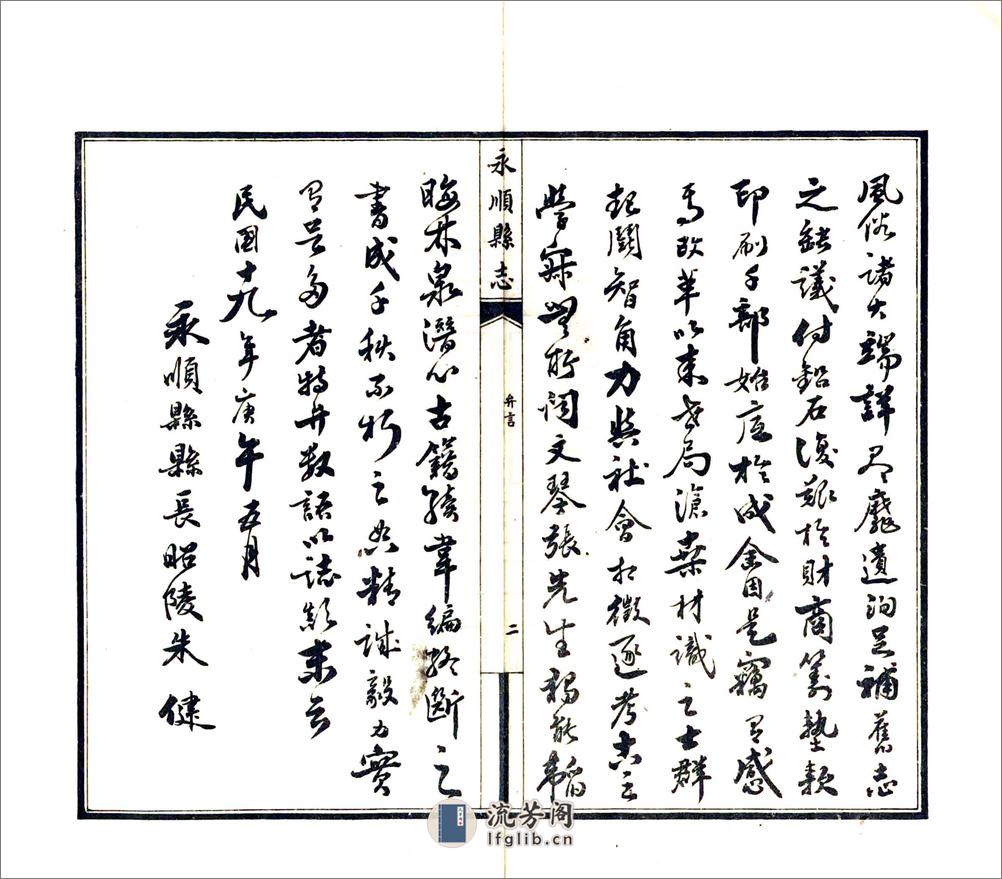 風俗諸大端詳靡遺洵足補舊志
之缺議付鉛石復艱於財商籌墊款
印刷千部始底於成余因是竊有感
焉改革以來世局滄桑材識之士群
起鬪智角力與社會相徵逐考古之
學寂無所聞文琴張先生獨能韜
永順縣志
弁言
二
晦林泉潛心古籍續韋編將斷之
書成千秋不朽之典精誠毅力實
有足多者特弁數語以誌顛末云
民國十九年庚午五月
永順縣縣長昭陵朱健
流芳阁
lfglib.cn